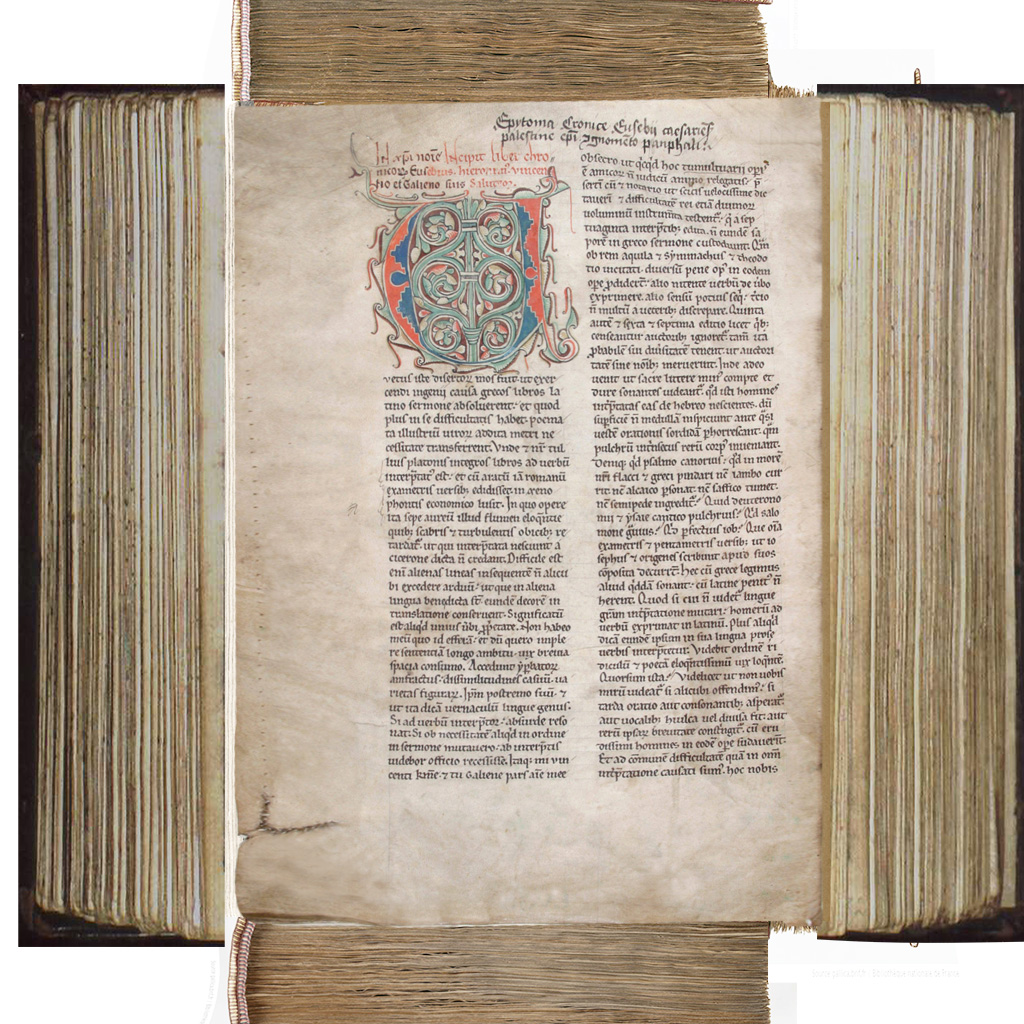 Epytoma Cronice Eusebii caesariēs
palestine ep̄i
In xp̄i noīe Incipit liber chro
nicoꝝ Eusebius. hieronim᷒ vincen
tio et Galieno suis Salutē
Vetus iste disertoꝝ mos fuit. ut exer
cendi ingenii causa grecos libros la
tino sermone absoluerent. et quod
plus in se difficultatis habet. poema
ta illustriū uiroꝝ addita metri ne
cessitate transferrent. Vnde ⁊ nr̄ tul
lius platonis integros libros ad uerbū
interp̄tat᷒ est. et cū aratū iā romanū
exametris uersib; edidisset. in xeno
phontis economico lusit. In quo opere
ita sepe aureū illud flumen eloq̄ntie
quib; scabris ⁊ turbulentis obicib; re
tardat᷒. ut qui interp̄tata nesciunt a
cicerone dicta n̄ credant. Difficile est
eni alienas lineas insequentē n̄ alicu
bi excedere arduū. ut que in aliena
lingua benedicta st̄ eundē decorē in
translatione conseruent. Significatū
est aliqd unius ūbi ꝓp̄etate. Non habeo
meū quo id efferā. et dū quero imple
re sententiā longo ambitu. uix breuia
spacia consumo. Accedunt yp̄batoꝝ
amfractus. dissimilitudines casuū. ua
rietas figurarꝝ. Ip̄m postremo suū. ⁊
ut ita dicā uernaculū lingue genus.
Si ad uerbū interp̄tor. absurde reso
nat. Si ob necessitatē aliqd in ordine
in sermone mutauero. ab interp̄tis
uidebor officio recessisse. Itaq; mi uin
centi km̄e. ⁊ tu Galiene pars aīe mee
obsecro ut qc̄qd hoc tumultuarii opis
ē amicoꝝ n̄ iudicū animo relegatis. p̄
sertī cū ⁊ notario ut scitis uelocissime dic
tauerī ⁊ difficultatē rei etiā diuinoꝝ
uoluminū instrumta testent᷒. q̄ a sep
tuaginta interp̄tib; edita. n̄ eundē sa
porē in greco sermone custodiunt. Quā
ob rem aquila ⁊ symmachus ⁊ theodo
tio incitati. diuersū pene op᷒ in eodem
ope ꝓdidert̄. alio nitente uerbū de ūbo
exprimere. alio sensū potius seq̄. tc̄io
n̄ multū a ueterib; discrepare. Quinta
autē ⁊ sexta ⁊ septima editio licet q̄b;
censeantur auctorib; ignoret᷒. tam̄ ita
ꝓbabilē sui diuisitatē tenent. ut auctori
tatē sine noīb; meruerint. Inde adeo
uenit ut sacre littere min᷒ compte et
dure sonantes uideant᷒. qd isti homines
int̄p̄tatas eas de hebreo nescientes. dū
supficiē n̄ medullā inspiciunt ante q̄si
uestē orationis sordidā phorrescant. qm̄
pulchrū int̄nsecus rerū corp᷒ inueniant.
Deniq; qd psalmo canorius. qd in morē
nr̄i flacci ⁊ greci pindari nc̄ iambo cur
rit. nc̄ alcaico ꝑsonat. nc̄ saffico tumet.
nc̄ semipede ingredit᷒. Quid deuterono
mii ⁊ ysaie cantico pulchrius. Qd salo
mone g̑uius. Qd ꝑfectius iob. Que oīa
exametris ⁊ pentametris uersib; ut io
sephus ⁊ origenes scribunt apud suos
cōposita decurrt̄. Hec cū grece legimus
aliud q̄ddā sonant. cū latine penit᷒ n̄
herent. Quod si cui n̄ uidet᷒ lingue
gr̄am int̄p̄tatione mutari. homerū ad
uerbū exprimat in latinū. Plus aliqd
dicā eundē ipsum in sua lingua prose
uerbis interp̄tetur. Videbit ordinē ri
diculū ⁊ poetā eloq̄ntissimū uix loq̄nte.
Quorsum ista. Videlicet ut non uobis
mirū uideat᷒ si alicubi offendim᷒. si
tarda oratio aut consonantib; asp̄at᷒.
aut uocalib; hiulca uel diuisa fit. aut
rerū ipsaꝝ breuitate const̄ngit᷒. cū eru
ditissimi homines in eodē ope sudauerit̄.
Et ad cōmunē difficultatē quā in om̄i
int̄p̄tatione causati sum᷒. hoc nobis